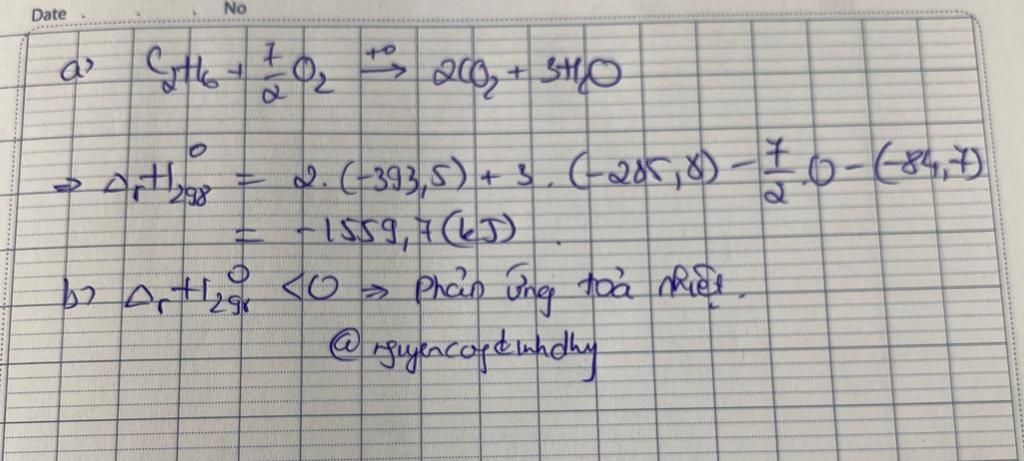 Date . . No
a) C₂H₆ + 7/2 O₂ →(t⁰) 2CO₂ + 3H₂O
⇒ ΔrH⁰₂₉₈ = 2.(-393,5) + 3.(-285,8) - 7/2.0 - (-84,7)
= -1559,7 (kJ).
b) ΔrH⁰₂₉₈ < 0 ⇒ Phản ứng toả nhiệt.